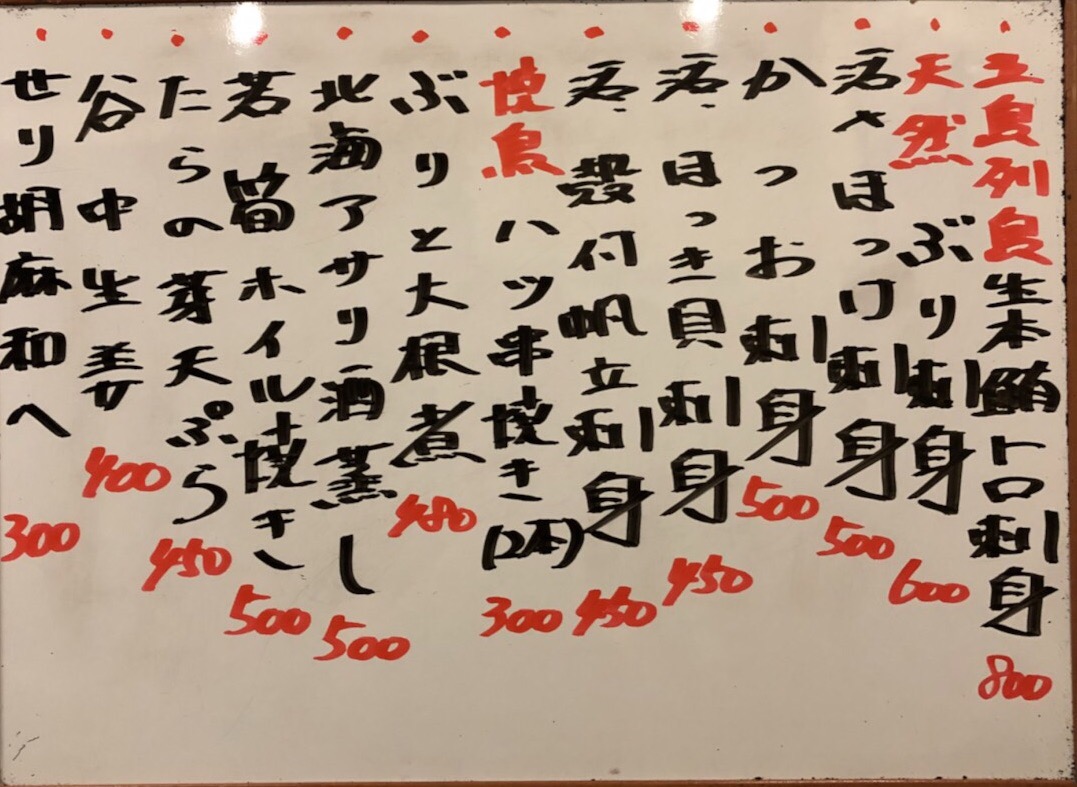 五島列島生本鮪トロ刺身 800
天然ぶり刺身 600
活〆ほっけ刺身 500
かつお刺身 500
活、ほっき貝刺身 450
活、殻付帆立刺身 450
焼鳥ハツ串焼き(2本) 300
ぶりと大根煮 480
北海アサリ酒蒸し 500
若筍ホイル焼き 500
たらの芽天ぷら 450
谷中生姜 400
せり胡麻和へ 300